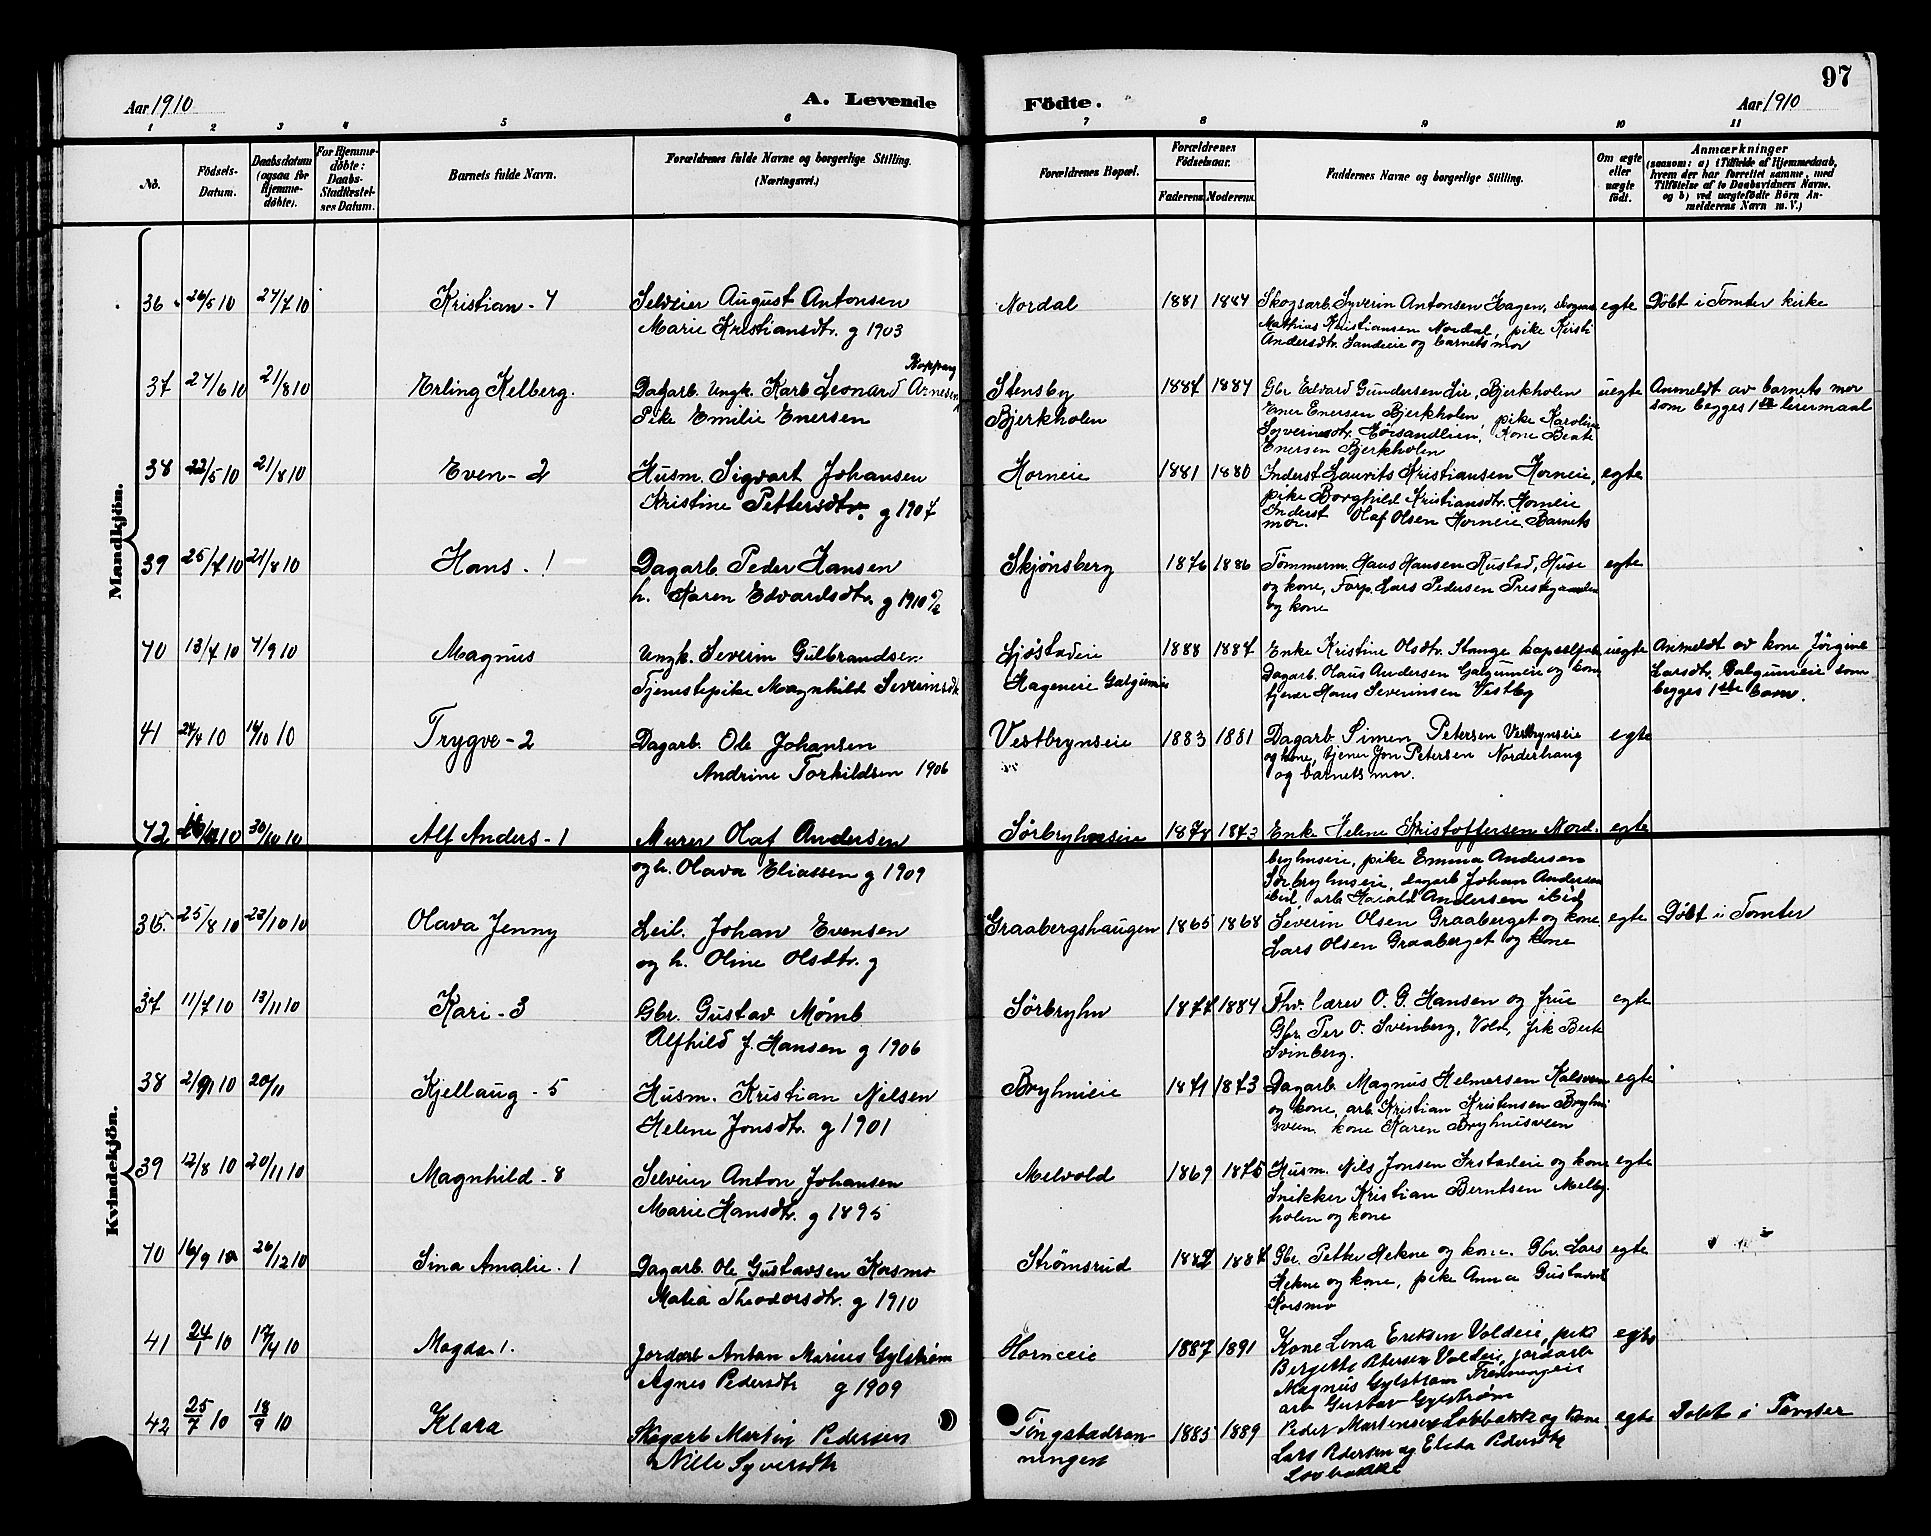 97
Aar 1910
A. Levende Födte.
Aar 1910
1 2 3 4 5 6 7 8 9 10 11
No.
Födsels-Datum.
Daabsdatum (ogsaa for Hjemme-döbte).
For Hjemme-döbte: Daabs-Stadfæstel-ses Datum.
Barnets fulde Navn.
Forældrenes fulde Navne og borgerlige Stilling.
(Næringsvei.)
Forældrenes Bopæl.
Forældrenes Födselsaar.
Faderens Moderens
Faddernes Navne og borgerlige Stilling.
Om ægte eller uægte født.
Anmærkninger
(saasom: a) i Tilfælde af Hjemmedaab, hvem der har forrettet samme, med Tilföielse af to Daabsvidners Navne, og b) ved uægtefödte Börn An-melderens Navn m. V.)
Mandkjön.
36 26/5 10 24/7 10 Kristian - 4 Selveier August Antonsen Nordal 1881 1884 Skogsarb. Syverin Antonsen Hagen, skogsa egte Döbt i Tomter kirke
Marie Kristiansdtr. g 1903 Mathias Kristiansen Nordal, pike Kirsti
Andersdtr. Sandeeie og barnets mor
Koppang
37 24/6 10 21/8 10 Erling Kelberg. Dagarb. Ungk. Karb Leonard Arnesen Stensby 1887 1884 Gbr Edvard Gundersen Lie, Bjerkholen uegte Anmeldt av barnets mor
Pike Emilie Enersen Bjerkholen Ener Enersen Bjerkholen, pike Karoline som begges 1ste leiermaal
Syverinsdtr. Hörsandlien, kone Beate
Enersen Bjerkholen
38 22/5 10 21/8 10 Even - 2 Husm. Sigvart Johansen Horneie 1881 1880 Inderst Laurits Kristiansen Horneie, egte
Kristine Pettersdtr. g 1907 pike Borghild Kristiansdtr. Horneie
Inderst Olaf Olsen Horneie. Barnets
mor.
39 25/7 10 21/8 10 Hans - 1 Dagarb. Peder Hansen Skjönsberg 1876 1886 Tömmerm. Hans Hansen Rustad, Huse egte
h. Karen Edvardsdtr. g 1910 og kone, Forp. Lars Pedersen Prestgaarden
og kone
40 13/7 10 4/9 10 Magnus Ungk. Severin Gulbrandsen Sjöstadeie 1888 1887 Enke Kristine Olsdtr. Stange uegte Anmeldt av kone Jörgine
Tjenestepike Magnhild Severinsdtr Hageneie Dagarb. Olaus Andersen Galgumeie og kone Larsdtr. Galgumeie som
tjener Hans Severinsen Vestby begges 1ste barn.
41 24/4 10 16/10 10 Trygve - 2 Dagarb. Ole Johansen Vestbrynseie 1883 1881 Dagarb Simen Petersen Vestbrynseie egte
Andrine Torkildsen 1906 og kone, tjener Jon Petersen Norderhaug
og barnets mor.
42 10 30/10 10 Alf Anders - 1 Murer Olaf Andersen Sörbryhnseie 1878 1873 Enke Helene Kristoffersen Nord- egte
og h. Olava Eliassen g 1909 bryhnseie, pike Emma Andersen
Sörbryhnseie, dagarb Johan Andersen
ibid, arb Harald Andersen ibid
Kvindekjön.
36 25/8 10 23/10 10 Olava Jenny Leil. Johan Evensen Graabergshaugen 1865 1868 Severin Olsen Graaberget og kone egte Döbt i Tomter
og h. Oline Olsdtr. g Lars Olsen Graaberget og kone
37 11/7 10 13/11 10 Kari - 3 Gbr. Gustav Mömb Sörbryhn 1877 1884 Fhv. lærer O. G. Hansen og frue egte
Alfhild J. Hansen g 1906 Gbr. Per O. Svenberg, Vold, frk Berte
Svinberg.
38 2/9 10 20/11 Kjellaug - 5 Husm. Kristian Nilsen Bryhnieie 1871 1873 Dagarb Magnus Helmersen Kalsveen egte
Helene Jonsdtr. g 1901 og kone, arb Kristian Kristensen Bryhni
sveen. kone Karen Bryhnisveen
39 12/8 10 20/11 10 Magnhild - 8 Selveier Anton Johansen Melvold 1869 1875 Husm. Nils Jonsen Irstadeie og kone egte
Marie Hansdtr. g 1895 Snikker Kristian Berntsen Melby-
holen og kone
40 16/9 10 26/12 10 Sina Amalie - 1 Dagarb. Ole Gustavsen Korsmo Strömsrud 1887 1887 Gbr. Petter Hekne og kone. Gbr. Lars egte
Matea Theodorsdtr. g 1910 Hekne og kone, pike Anna Gustavsd
Korsmo
41 24/1 10 17/4 10 Magda 1. Jordarb Anton Marius Gylström Horneeie 1887 1891 Kone Lena Eriksen Voldeie, pike egte
Agnes Pedersdtr g 1909 Bergette Petersen Voldeie, jordarb
Magnus Gylstrøm
arb Gustav Gylström
42 25/7 10 18/9 10 Klara Skogarb Martin Pedersen Tingstadran- 1885 1889 Peder Martensen Lobbakke og kone egte Döbt i Tomter
Nille Syversdtr ningen Lars Pedersen og Eleda Pedersdtr